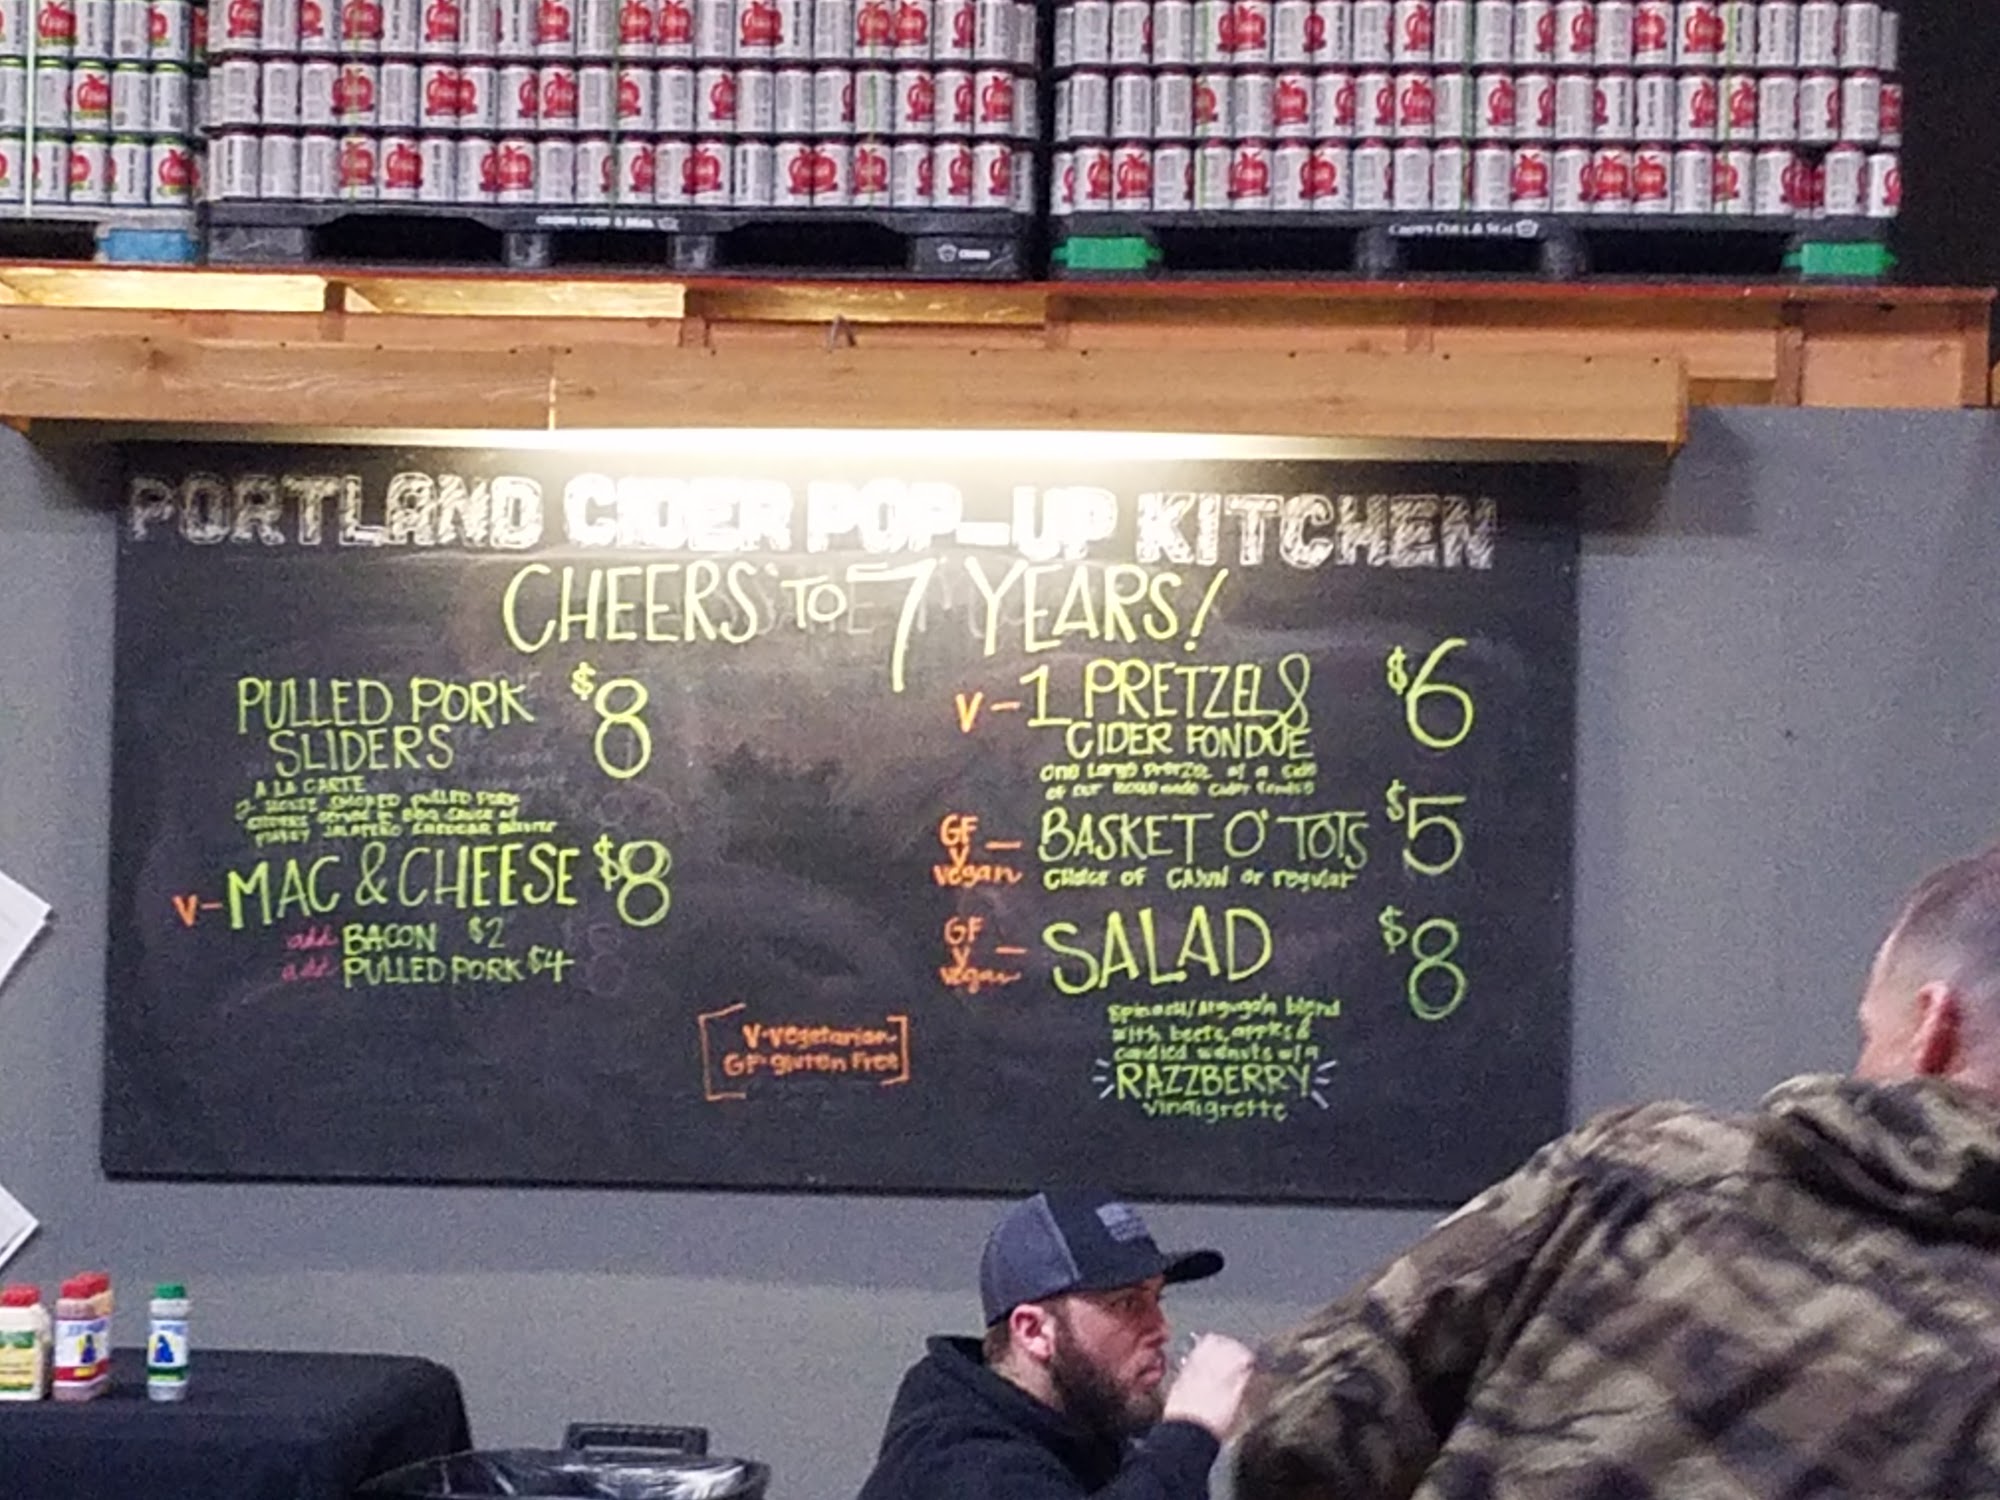 CROWN CORK & SEAL
CROWN
CROWN CORK & SEAL
PORTLAND CIDER POP-UP KITCHEN
CHEERS TO 7 YEARS!
PULLED PORK $8
SLIDERS
A LA CARTE
2 HOUSE SMOKED PULLED PORK
SLIDERS served w BBQ SAUCE
JALAPEÑO CHEDDAR
V- MAC & CHEESE $8
add BACON $2
add PULLED PORK $4
V-vegetarian
GF-gluten Free
V - 1 PRETZEL & $6
CIDER FONDUE
one Large Pretzel w/ a side
of our house made cider fondue
GF V vegan - BASKET O' TOTS $5
CHOICE OF CAJUN or regular
GF V vegan - SALAD $8
Spinach/Arugula blend
with beets, apples &
candied walnuts w/ a
RAZZBERRY
vinaigrette